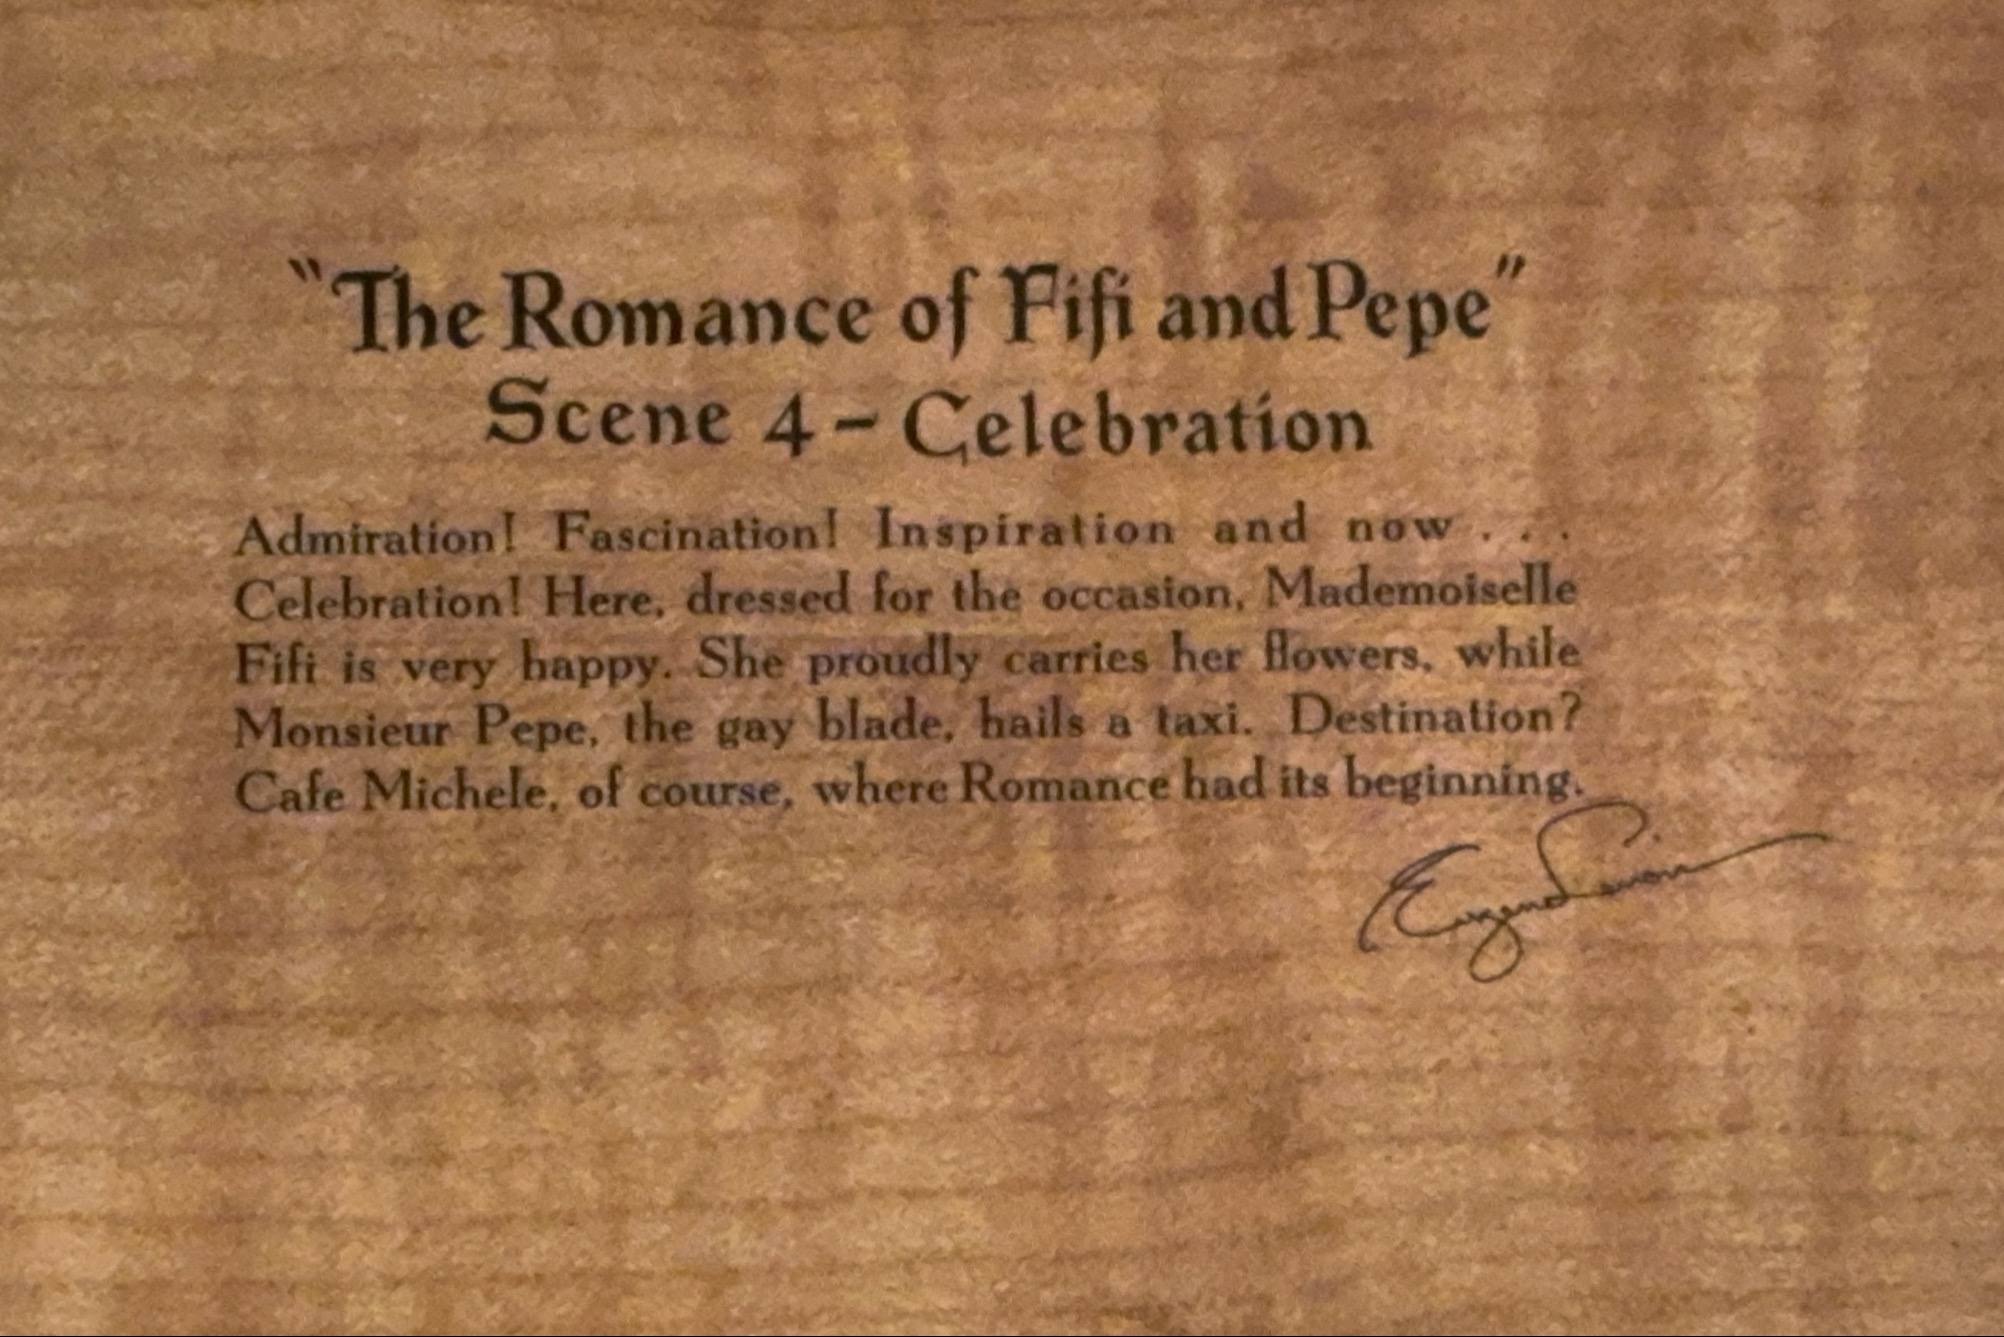 "The Romance of Fifi and Pepe"
Scene 4 - Celebration
Admiration! Fascination! Inspiration and now . . .
Celebration! Here, dressed for the occasion, Mademoiselle
Fifi is very happy. She proudly carries her flowers, while
Monsieur Pepe, the gay blade, hails a taxi. Destination?
Cafe Michele, of course, where Romance had its beginning.
Eugene